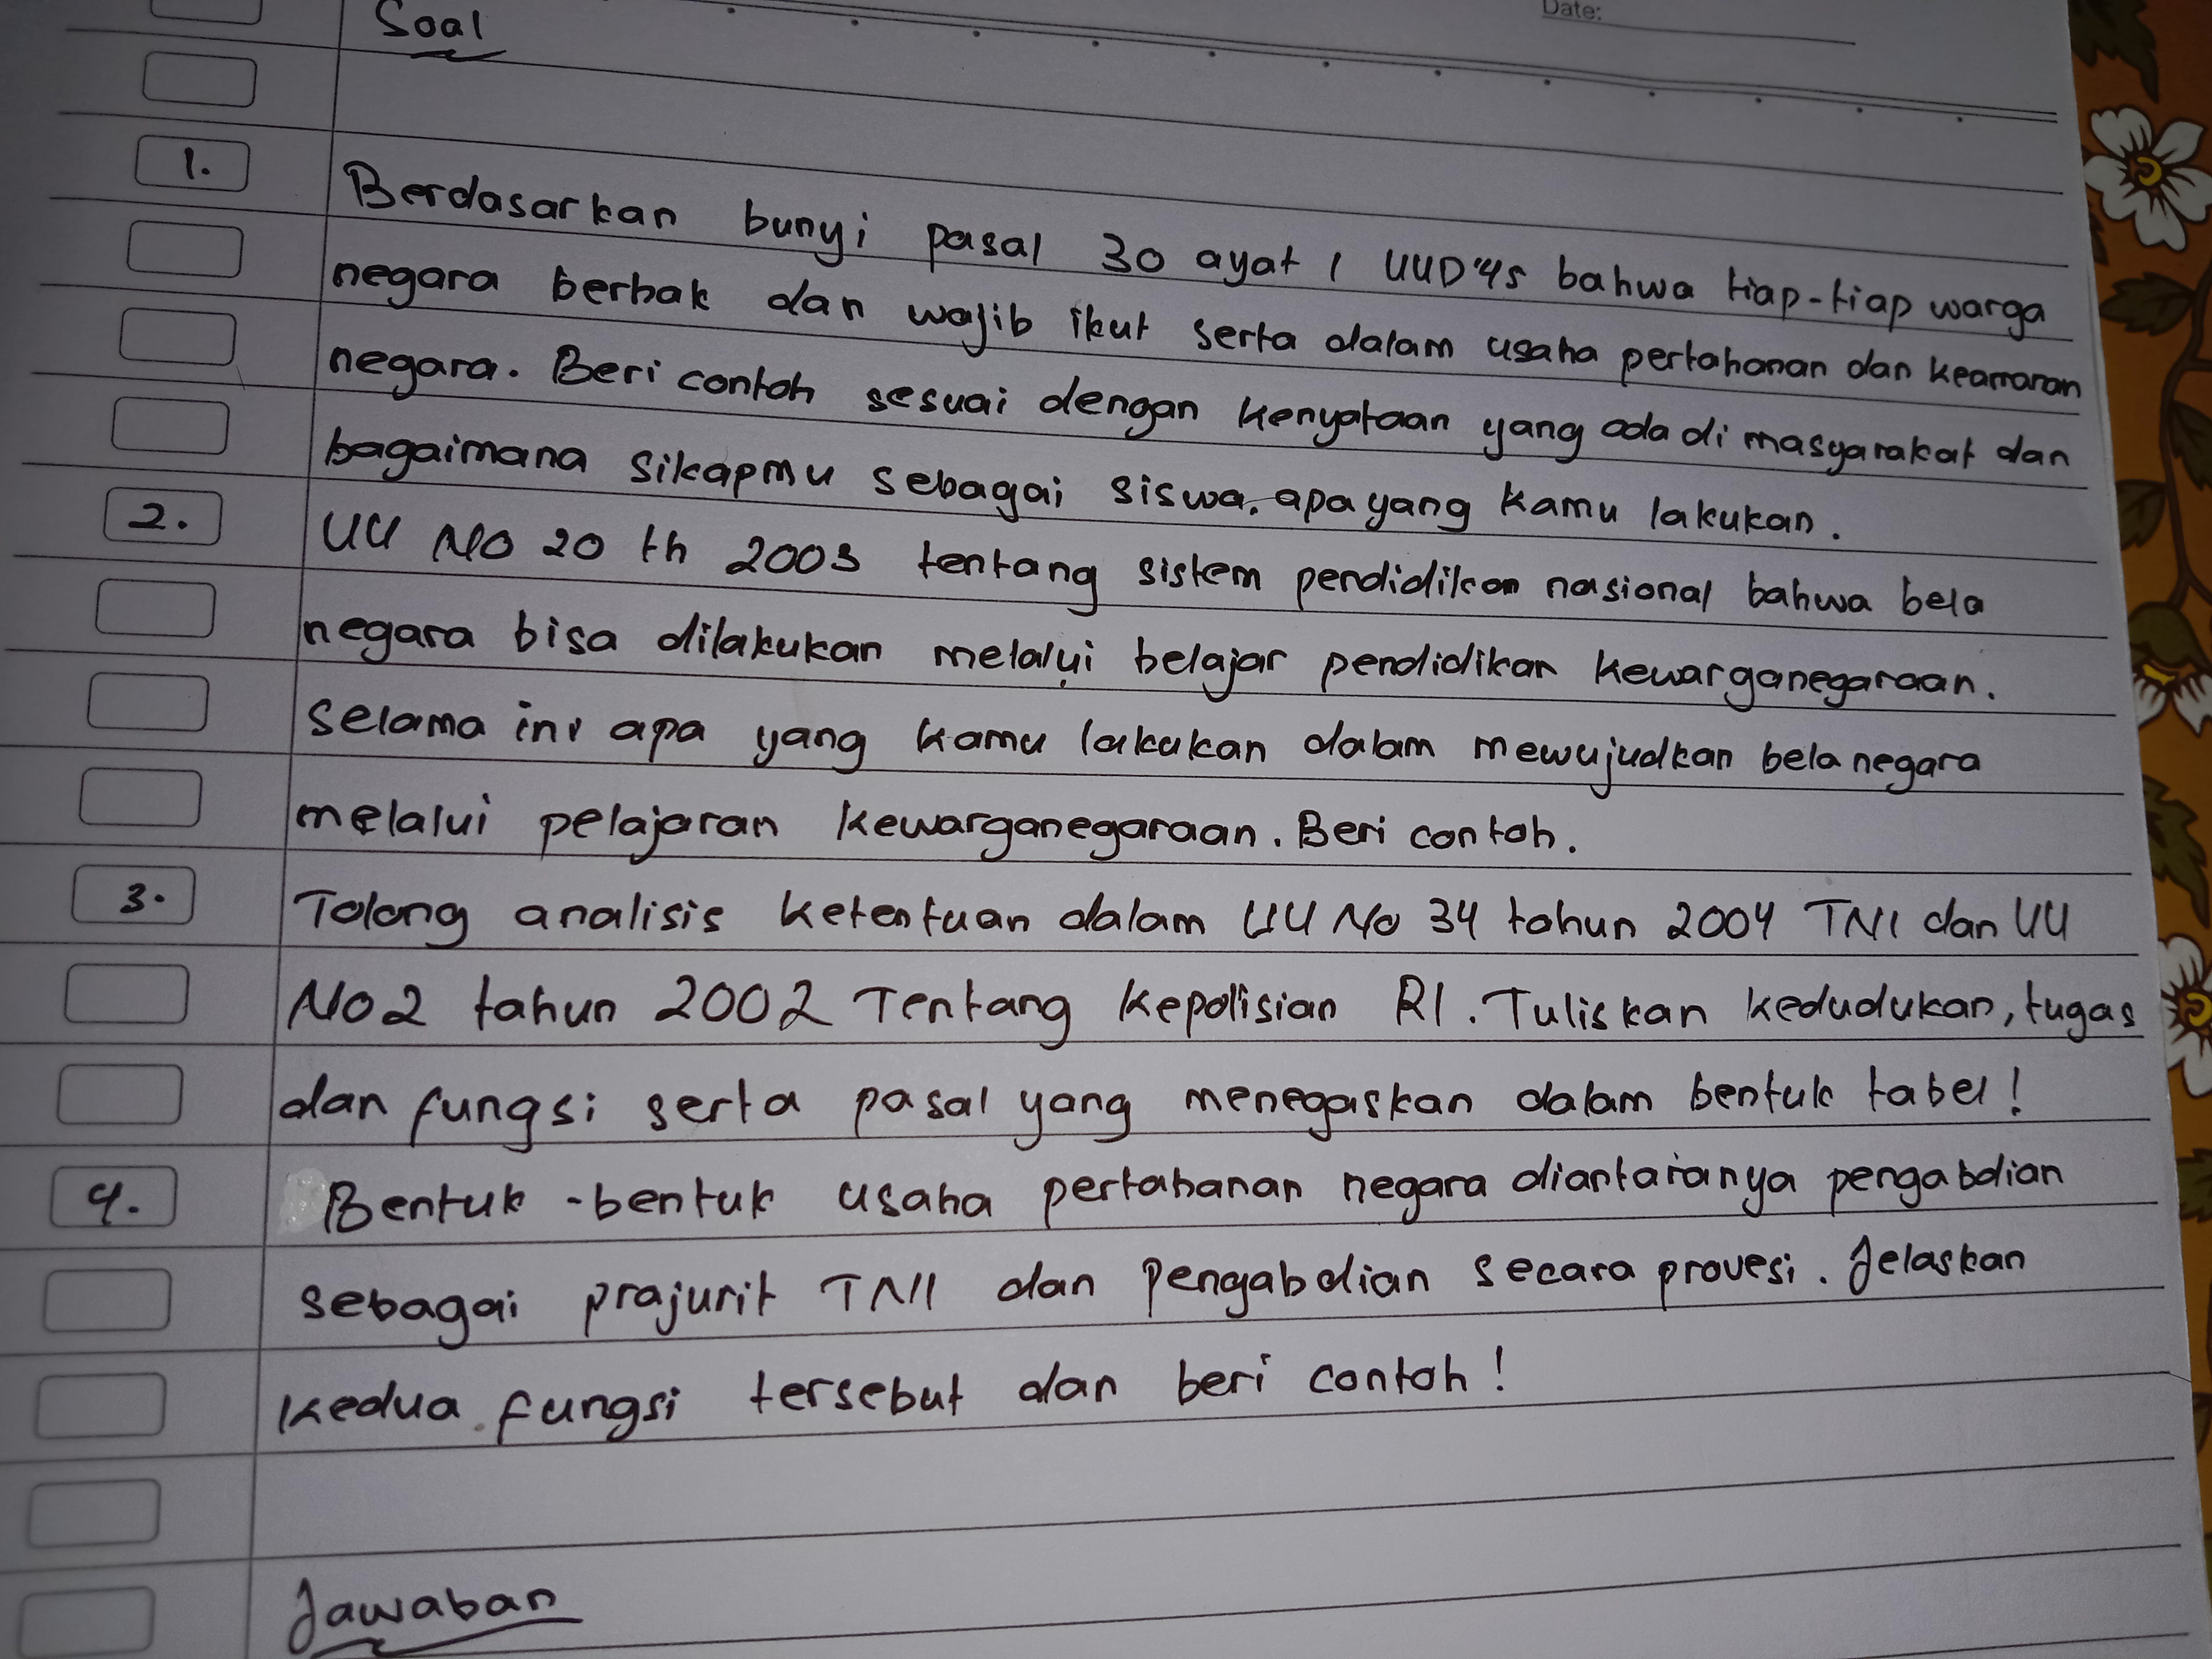 Date:
Soal
1. Berdasarkan bunyi pasal 30 ayat 1 UUD'45 bahwa tiap-tiap warga
negara berhak dan wajib ikut serta dalam usaha pertahanan dan keamanan
negara. Beri contoh sesuai dengan kenyataan yang ada di masyarakat dan
bagaimana sikapmu sebagai siswa, apa yang kamu lakukan.
2. UU NO 20 th 2003 tentang sistem pendidikan nasional bahwa bela
negara bisa dilakukan melalui belajar pendidikan kewarganegaraan.
selama ini apa yang kamu lakukan dalam mewujudkan bela negara
melalui pelajaran kewarganegaraan. Beri contoh.
3. Tolong analisis ketentuan dalam UU No 34 tahun 2004 TNI dan UU
No 2 tahun 2002 Tentang kepolisian RI. Tuliskan kedudukan, tugas
dan fungsi serta pasal yang menegaskan dalam bentuk tabel!
4. Bentuk-bentuk usaha pertahanan negara diantaranya pengabdian
sebagai prajurit TNI dan pengabdian secara provesi. Jelaskan
kedua fungsi tersebut dan beri contoh!
Jawaban